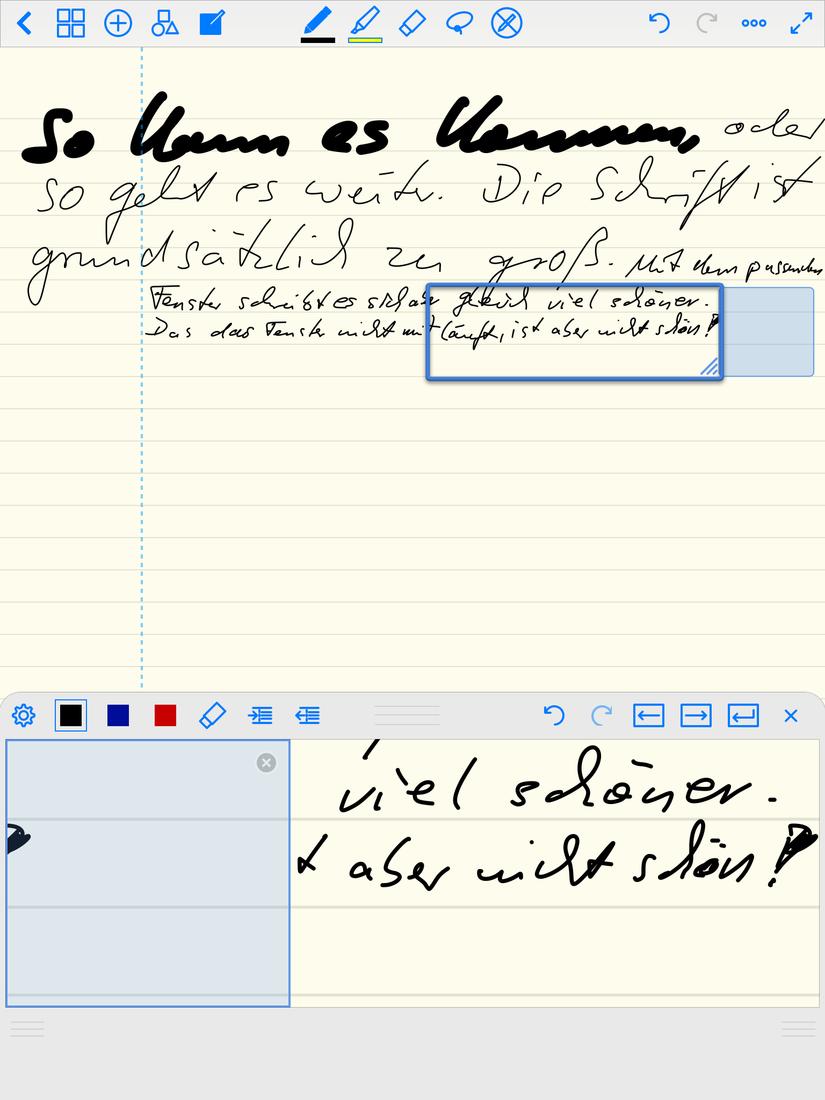 So kann es kommen, oder
so geht es weiter. Die Schrift ist
grundsätzlich zu groß. Mit dem passenden
Fenster schreibt es sich aber gleich viel schöner.
Das das Fenster nicht mitläuft, ist aber nicht schön!
viel schöner.
t aber nicht schön!